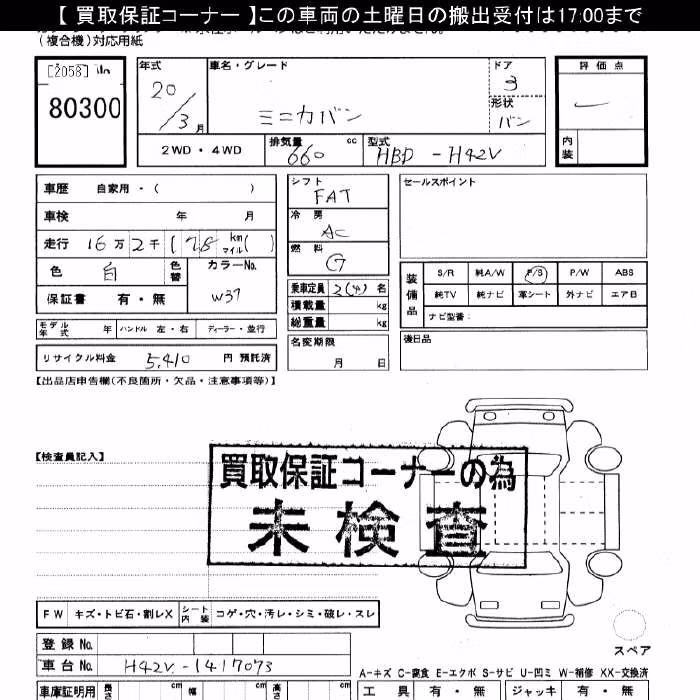 【 買取保証コーナー 】この車両の土曜日の搬出受付は17:00まで
(複合機)対応用紙
[2058]
80300
年式 20/3月
車名・グレード ミニカバン
ドア 3
形状 バン
評価点
内装
2WD・4WD
排気量 660 cc
型式 HBD-H42V
車歴 自家用・( )
車検 年 月
走行 16万2千(178 km マイル( )
色 白 色替
カラーNo. W37
保証書 有・無
シフト FAT
冷房 AC
燃料 G
乗車定員 2(4)名
積載量 kg
総重量 kg
名変期限 月 日
セールスポイント
装備品
S/R 純A/W P/S P/W ABS
純TV 純ナビ 革シート 外ナビ エア日
ナビ型番:
後日品
モデル年式 年 ハンドル 左・右 ディーラー・並行
リサイクル料金 5,410 円 預託済
【出品店申告欄(不良箇所・欠品・注意事項等)】
【検査員記入】
買取保証コーナーの為
未検査
FW キズ・トビ石・割レX シート内装 コゲ・穴・汚レ・シミ・破レ・スレ
スペア
登録No.
車台No. H42V-1417073
A-キズ C-腐食 E-エクボ S-サビ U-凹ミ W-補修 XX-交換済
車庫証明用 長さ cm 幅 cm 高さ cm
工具 有・無 ジャッキ 有・無